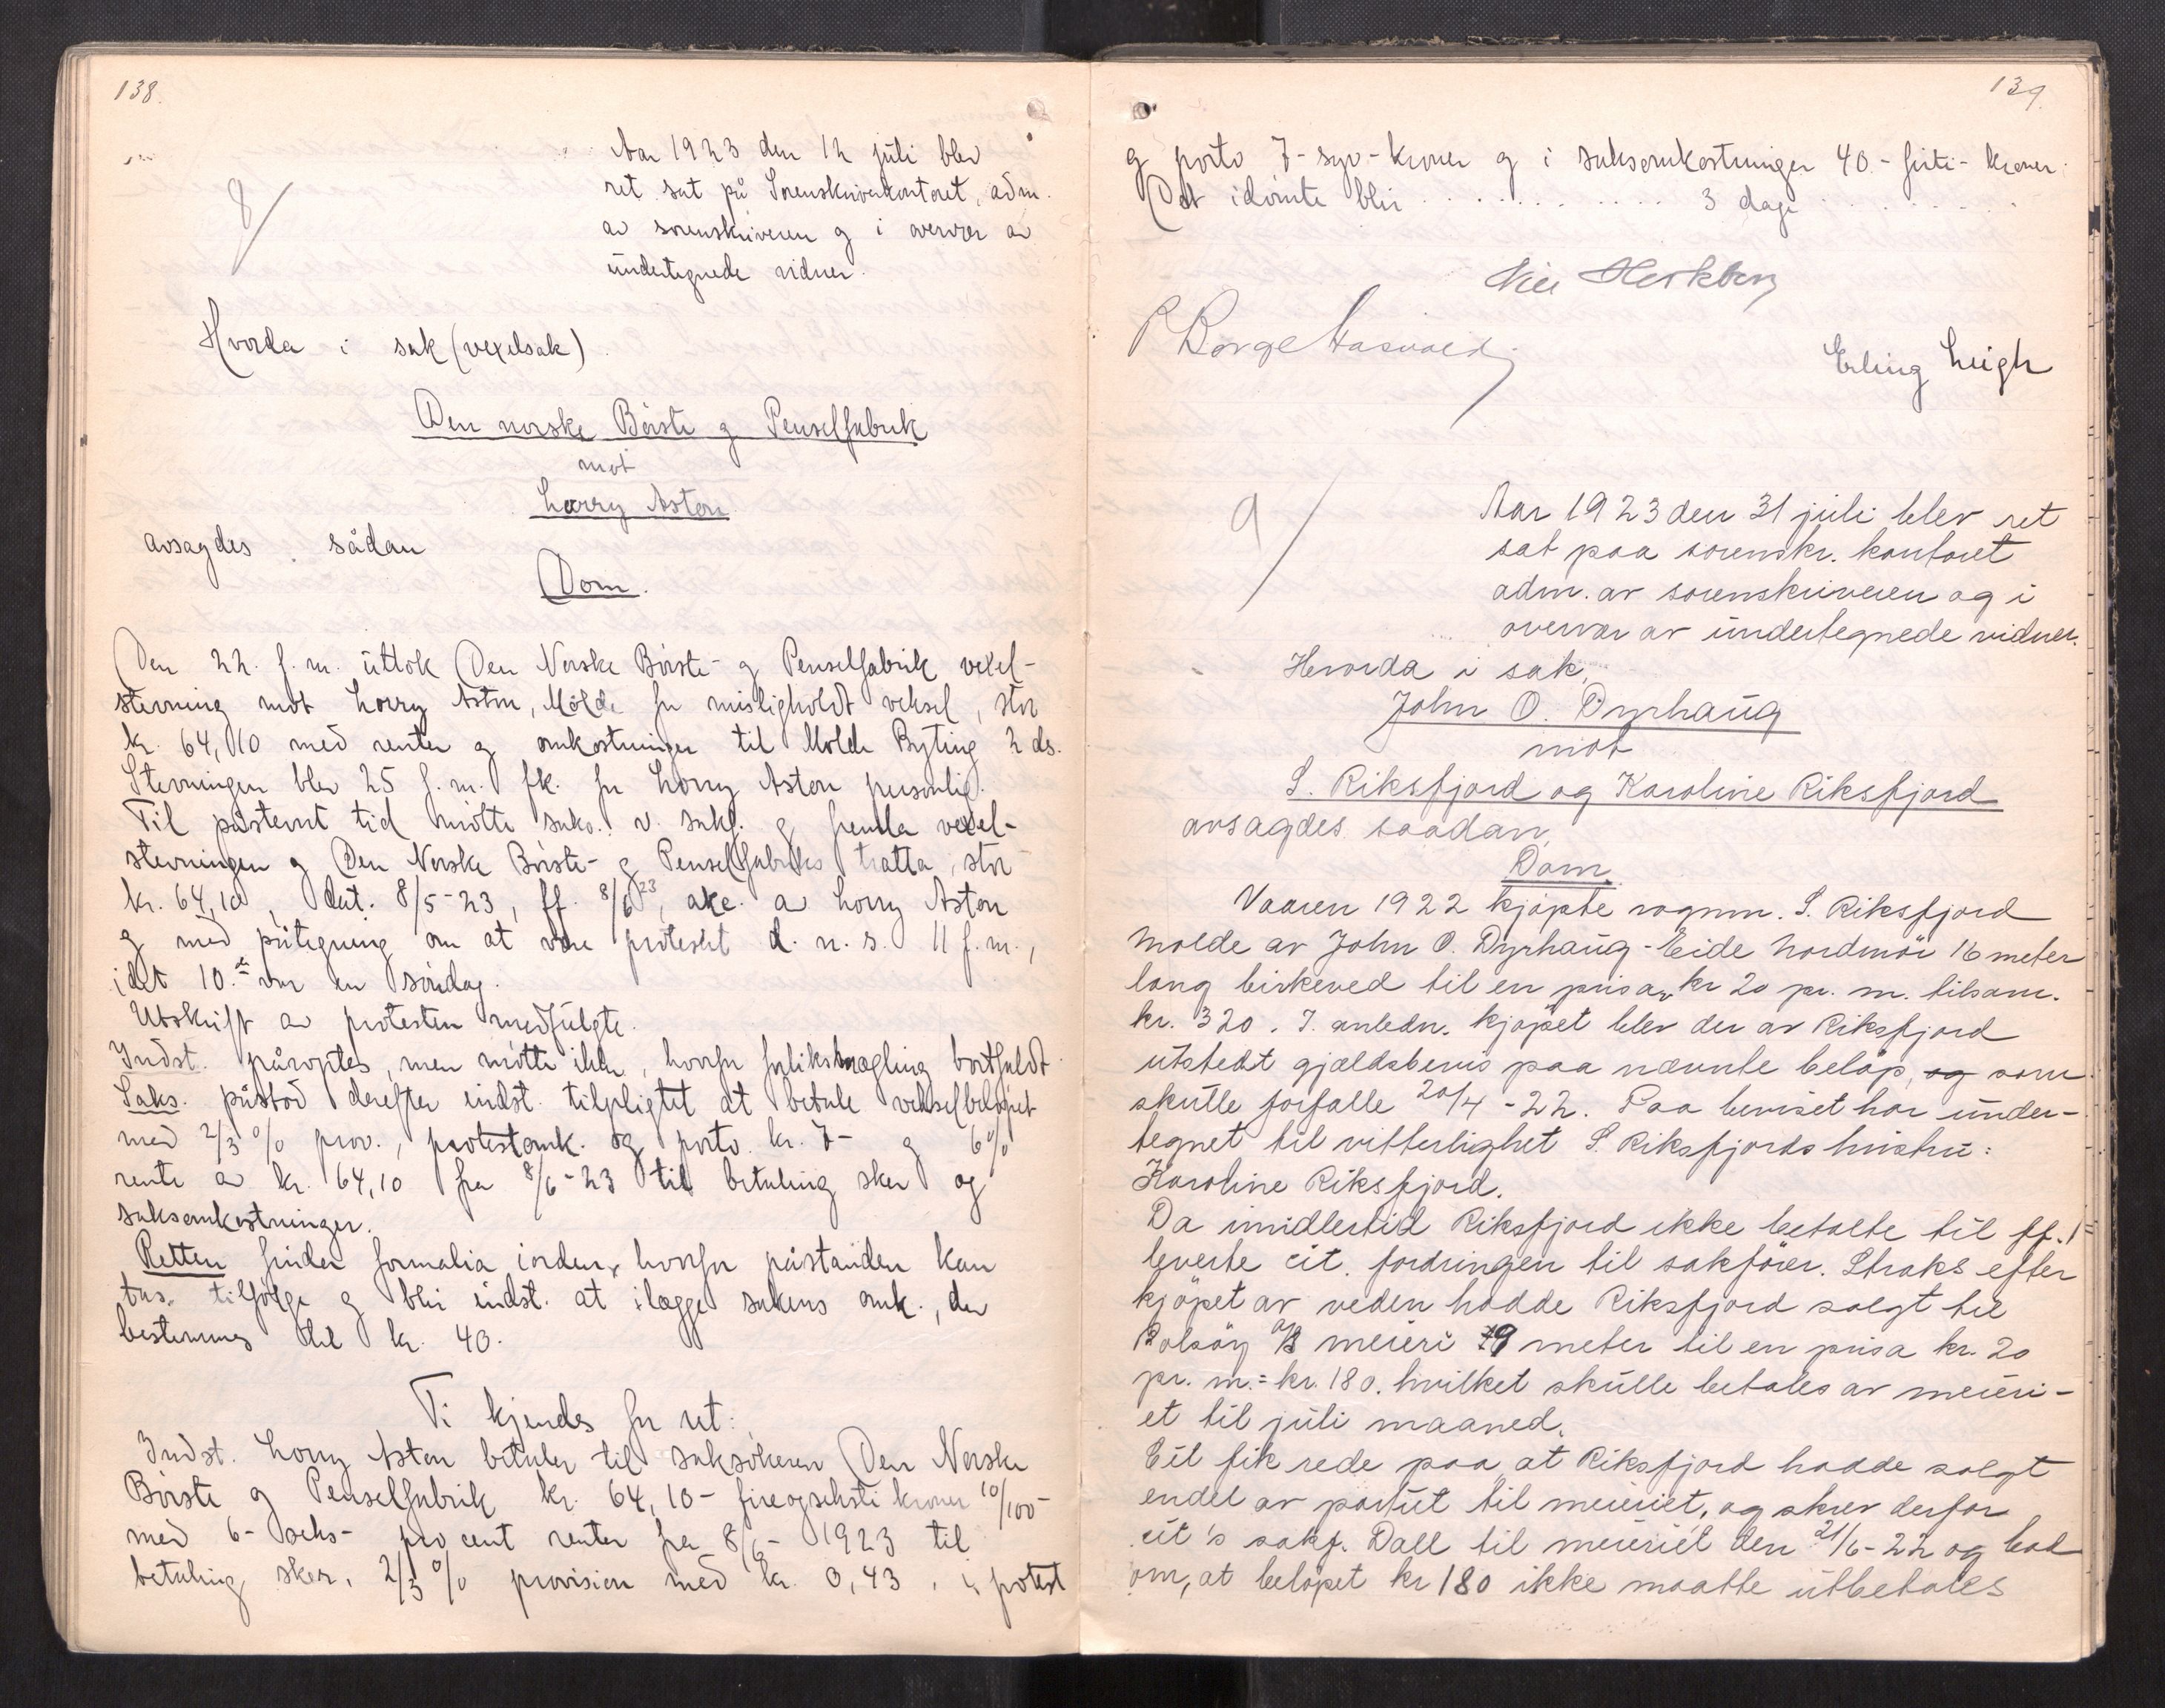 138.
Aar 1923 den 12 juli blev
ret sat på Sorenskriverkontoret, adm.
av sorenskriveren og i overvær av
undertegnede vidner.
8/
Hvorda i sak (vexelsak)
Den norske Børste og Penselfabrik
mot
Harry Aston
avsagdes sådan
Dom.
Den 22. f.m. uttok Den Norske Børste- og Penselfabrik vexel-
stevning mot Harry Aston, Molde for misligholdt veksel, stor
kr. 64,10 med renter og omkostninger til Molde Byting 2 ds.
Stevningen blev 25 f.m. fk. for Harry Aston personlig.
Til påstevnt tid møtte saks. v. sakf. og fremla vexel-
stevningen og Den Norske Børste- og Penselfabriks tratta, stor
kr. 64,10, dat. 8/5-23, ff. 8/6 23, akc. av Harry Aston
og med påtegning om at være protestert d. n. s. 11 f.m.,
idet 10.de var en søndag.
Utskrift av protesten medfulgte.
Indst. påroptes, men møtte ikke, hvorfor forliksmægling bortfaldt.
Saks. påstod derefter indst. tilpligtet at betale vekselbeløpet
med 2/3 % prov., protestomk. og porto kr. 7- og 6%
rente av kr. 64,10 fra 8/6-23 til betaling sker og
saksomkostninger.
Retten finder formalia iorden, hvorfor påstanden kan
tas tilfølge og blir indst. at ilægge sakens omk., der
bestemmes til kr. 40.
Ti kjendes for ret:
Indst. Harry Aston betaler til saksøkeren Den Norske
Børste og Penselfabrik kr. 64,10- fireogseksti kroner 10/100-
med 6- seks- procent renter fra 8/6- 1923 til
betaling sker, 2/3 % provision med kr. 0,43, i protest
139.
og porto 7-syv-kroner og i saksomkostninger 40.-firti-kroner.
Det idømte blir . . . . . . . . . . . 3 dage . . . . . . . .
P Borge Aasvald
Erling Leigh
9/
Aar 1923 den 31 juli blev ret
sat paa sorenskr. kontoret
adm. av sorenskriveren og i
overvær av undertegnede vidner.
Hvorda i sak,
John O. Dyrhaug
mot
S. Riksfjord og Karoline Riksfjord
avsagdes saadan,
Dom.
Vaaren 1922 kjøpte vognm. S. Riksfjord
Molde av John O. Dyrhaug-Eide Nordmør 16 meter
lang birkeved til en pris av kr 20 pr. m. tilsam.
kr. 320. I. anledn. kjøpet blev der av Riksfjord
utstedt gjældsbevis paa nævnte beløp, og som
skulle forfalle 20/4-22. Paa beviset har under-
tegnet til vitterlighet S. Riksfjords hustru:
Karoline Riksfjord.
Da imidlertid Riksfjord ikke betalte til ff.
leverte cit. fordringen til sakfører. Straks efter
kjøpet av veden hadde Riksfjord solgt til
Bolsøy A/S meieri 9 meter til en pris a kr. 20
pr. m. = kr. 180. hvilket skulle betales av meieri-
et til juli maaned.
Cit fik rede paa at Riksfjord hadde solgt
endel av partiet til meieriet, og skrev derfor
cit's sakf. Dall til meieriet den 21/6-22 og bad
om, at beløpet kr 180 ikke maatte utbetales